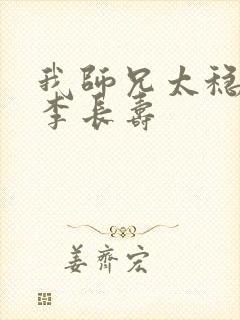 我師兄太穩
李長壽
姜齊宏